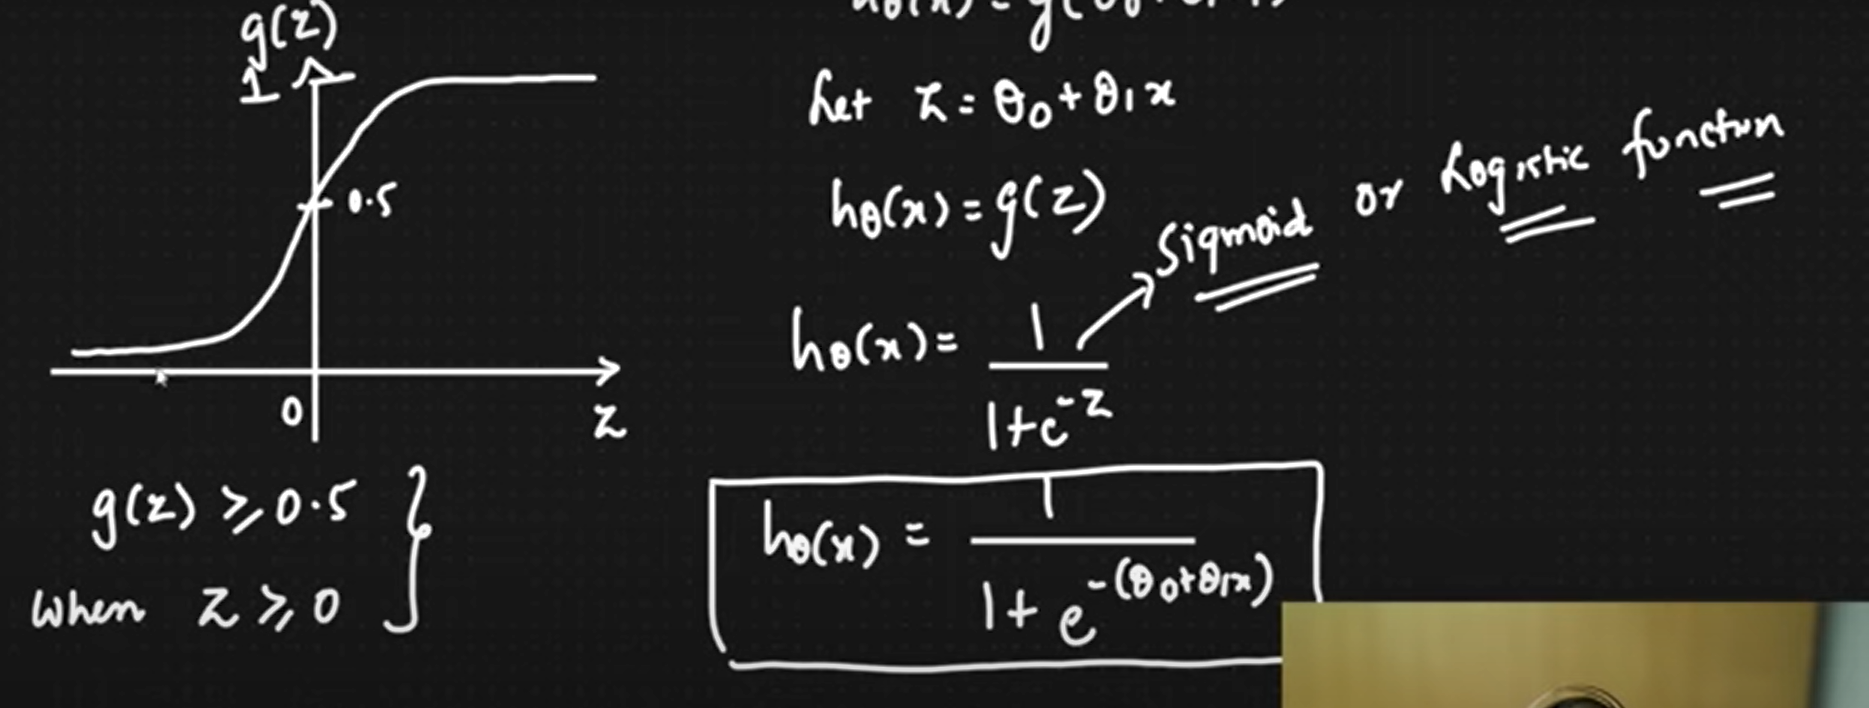 g(z)
1
0.5
0
z
g(z) ≥ 0.5
when z ≥ 0
Let z = θ0 + θ1x
hθ(x) = g(z)
Sigmoid or Logistic function
hθ(x) = 1 / 1+e^-z
hθ(x) = 1 / 1+e^-(θ0+θ1x)